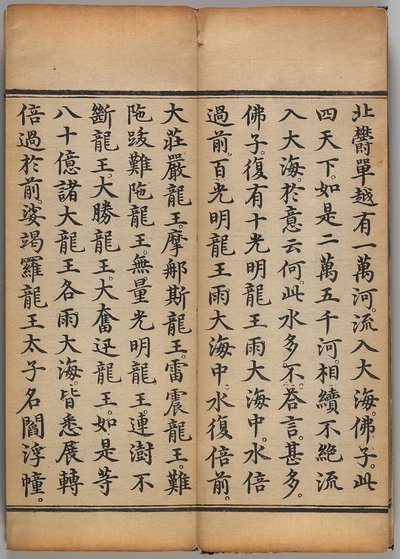 北欝單越有一萬河。流入大海。佛子。此
四天下。如是二萬五千河。相續不絶流
入大海。於意云何。此水多不。荅言。甚多。
佛子。復有十光明龍王雨大海中。水倍
過前。百光明龍王雨大海中。水復倍前。
大莊嚴龍王。摩𨙻斯龍王。雷震龍王。難
陁跋難陁龍王。無量光明龍王。連澍不
斷龍王。大勝龍王。大奮迅龍王。如是等
八十億諸大龍王各雨大海。皆悉展轉
倍過於前。娑竭羅龍王太子名閻浮幢。